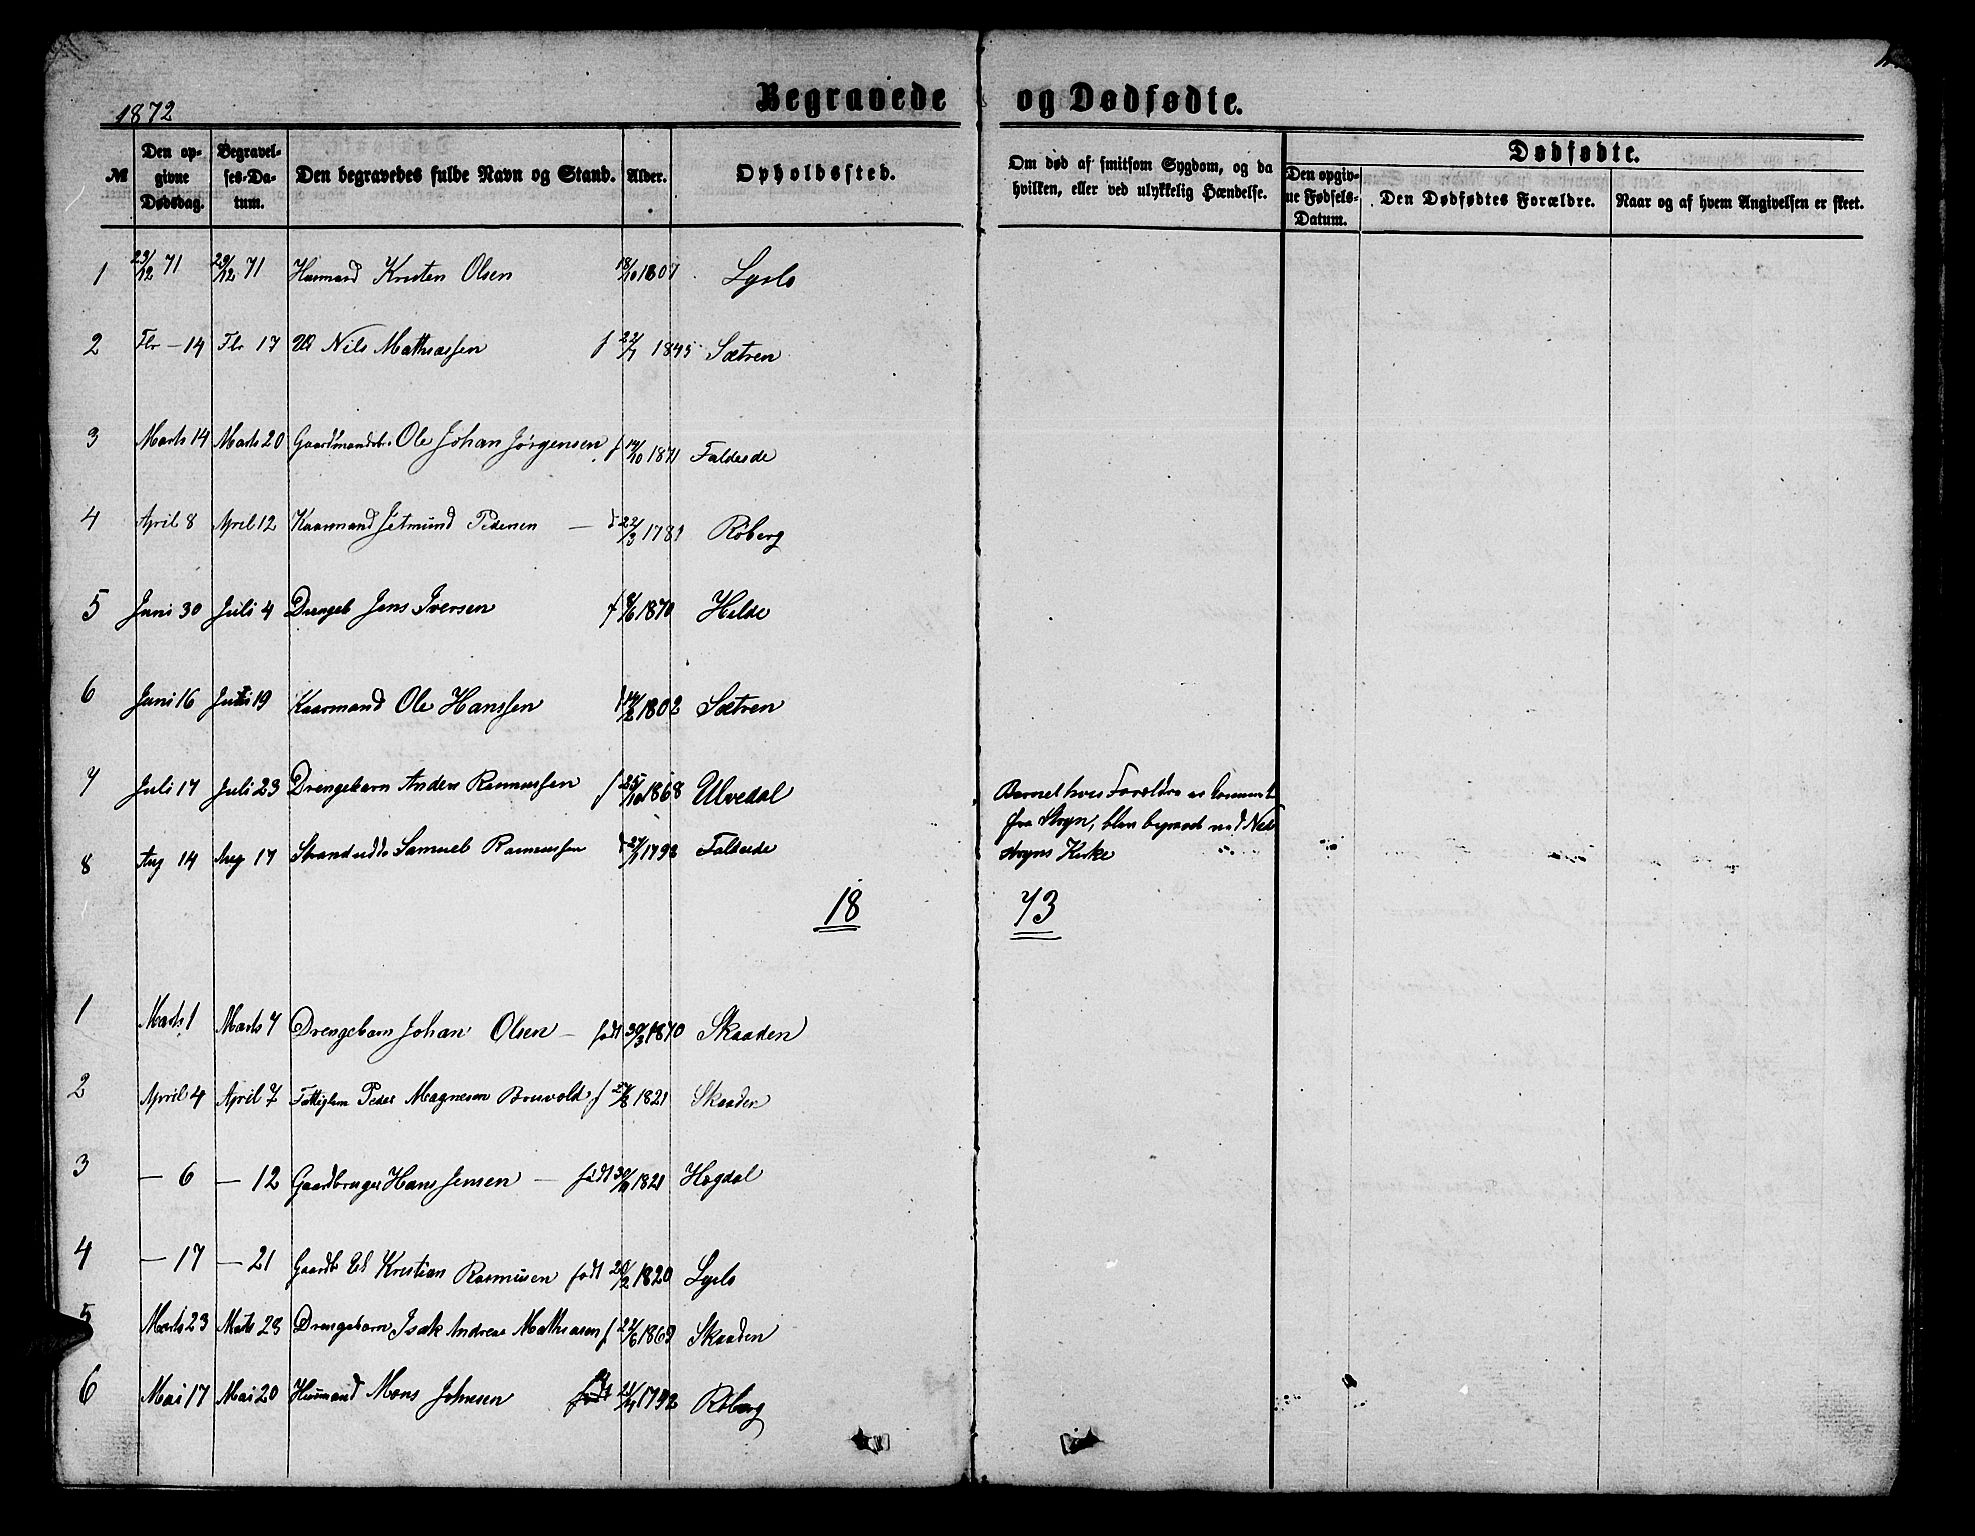 1872
Begravede og Dødfødte.
№ Den opgivne Dødsdag. Begravelses-Datum. Den begravedes fulde Navn og Stand. Alder. Opholdssted. Om død af smitsom Sygdom, og da hvilken, eller ved ulykkelig Hændelse. Dødfødte. Den opgivne Fødsels-Datum. Den Dødfødtes Forældre. Naar og af hvem Angivelsen er skeet.
1 23/12 71 29/12 71 Huusmand Kristen Olsen 18/10 1807 Lyslo
2 Fbr - 14 Fbr 17 Nils Mathiassen f 22/7 1845 Sætren
3 Marts 14 Marts 20 Gaardmandsb. Ole Johan Jørgensen f 14/10 1871 Faldeide
4 April 8 April 12 Kaarmand Jetmund Pedersen - f 22/3 1781 Roberg
5 Juni 30 Juli 4 Drengeb Jens Iversen f 8/6 1870 Helde
6 Juni 16 Juni 19 Kaarmand Ole Hanssen f 14/2 1802 Sætren
7 Juli 17 Juli 23 Drengebarn Anders Rasmussen f 25/10 1868 Ulvedal Barnet hvis Forældre er kommet
fra Stryn, blev begravet ved Ned
stryns Kirke
8 Aug 14 Aug 17 Strandsidde Samuel Rasmussen f 27/7 1798 Faldeide
18 73
1 Marts 1 Marts 7 Drengebarn Johan Olsen - født 30/3 1870 Skaaden
2 April 4 April 7 Fattiglem Peder Magnesen Bruvold f /8 1821 Skaaden
3 - 6 - 12 Gaardbruger Hans Jensen - født 30/11 1821 Hogdal
4 - 17 - 21 Gaardb El Kristian Rasmussen født 20/2 1820 Lyslo
5 Marts 23 Marts 28 Drengebarn Isak Andreas Mathiasen f 22/6 1869 Skaaden
6 Mai 17 Mai 20 Huusmand Mons Johnsen født 21/4 1792 Roberg